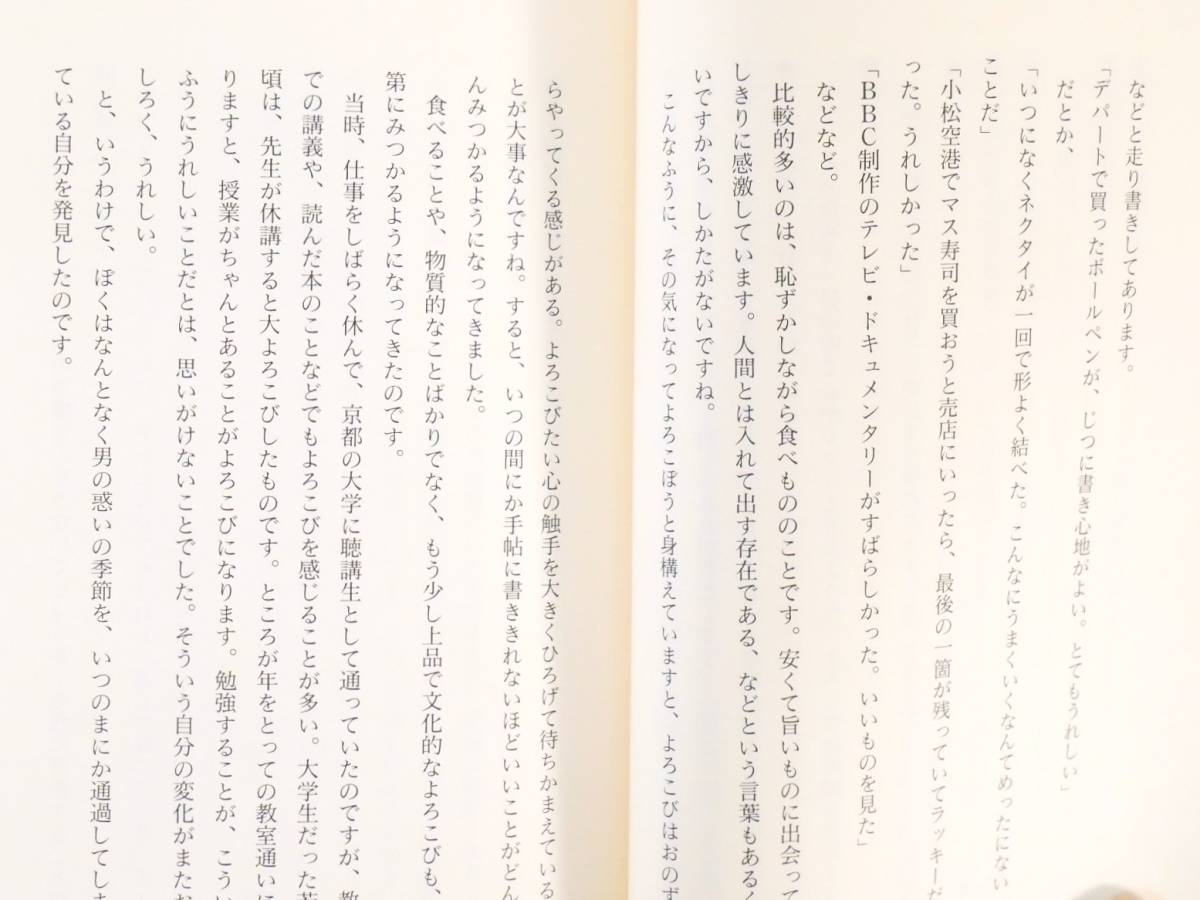 などと走り書きしてあります。
「デパートで買ったボールペンが、じつに書き心地がよい。とてもうれしい」
だとか、
「いつになくネクタイが一回で形よく結べた。こんなにうまくいくなんてめったにない
ことだ」
「小松空港でマス寿司を買おうと売店にいったら、最後の一箇が残っていてラッキーだ
った。うれしかった」
「BBC制作のテレビ・ドキュメンタリーがすばらしかった。いいものを見た」
などなど。
比較的多いのは、恥ずかしながら食べもののことです。安くて旨いものに出会って
しきりに感激しています。人間とは入れて出す存在である、などという言葉もあるく
いですから、しかたがないですね。
こんなふうに、その気になってよろこぼうと身構えていますと、よろこびはおのず
らやってくる感じがある。よろこびたい心の触手を大きくひろげて待ちかまえている
とが大事なんですね。すると、いつの間にか手帖に書ききれないほどいいことがどん
んみつかるようになってきました。
食べることや、物質的なことばかりでなく、もう少し上品で文化的なよろこびも、
第にみつかるようになってきたのです。
当時、仕事をしばらく休んで、京都の大学に聴講生として通っていたのですが、教
での講義や、読んだ本のことなどでもよろこびを感じることが多い。大学生だった
頃は、先生が休講すると大よろこびしたものです。ところが年をとっての教室通いに
りますと、授業がちゃんとあることがよろこびになります。勉強することが、こうい
ふうにうれしいことだとは、思いがけないことでした。そういう自分の変化がまたお
しろく、うれしい。
と、いうわけで、ぼくはなんとなく男の惑いの季節を、いつのまにか通過してしま
ている自分を発見したのです。